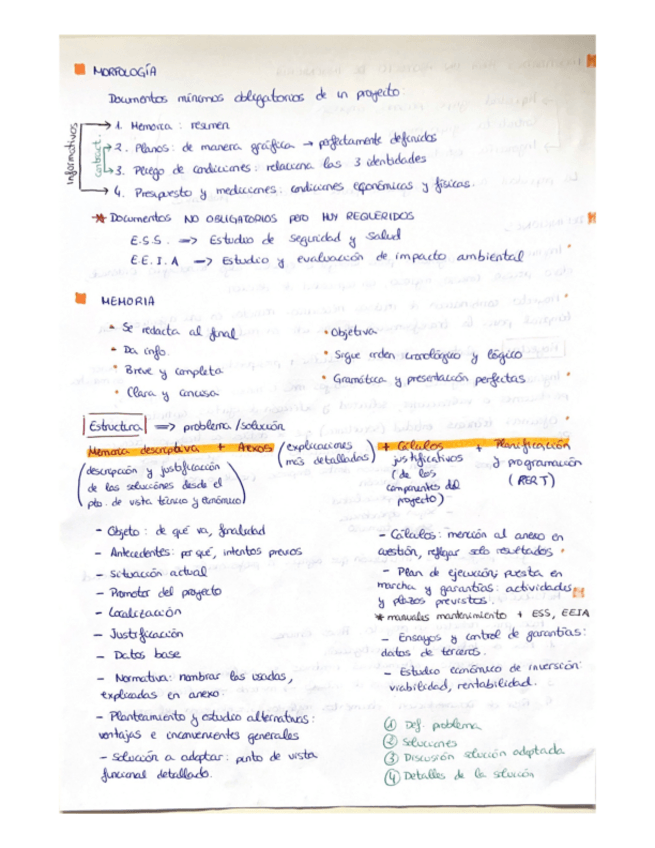 MORFOLOGÍA
Documentos mínimos obligatorios de un proyecto:
Informativos
Contract.
1. Memoria: resumen
2. Planos: de manera gráfica → perfectamente definidos
3. Pliego de condiciones: relaciona las 3 identidades
4. Presupuesto y mediciones: condiciones económicas y físicas.
* Documentos NO OBLIGATORIOS pero MUY REQUERIDOS
E.S.S. => Estudio de seguridad y salud
E.E.I.A => Estudio y evaluación de impacto ambiental
MEMORIA
• Se redacta al final
• Da info.
• Breve y completa
• Clara y concisa
• Objetiva
• Sigue orden cronológico y lógico
• Gramática y presentación perfectas
Estructura => problema/solución
Memoria descriptiva + Anexos (explicaciones más detalladas) + Cálculos + Planificación
(descripción y justificación
de las soluciones desde el
pto. de vista técnico y económico)
justificativos
(de los
componentes del
proyecto)
y programación
(PERT)
- Objeto: de qué va, finalidad
- Antecedentes: por qué, intentos previos
- Situación actual
- Promotor del proyecto
- Localización
- Justificación
- Datos base
- Normativa: nombrar las usadas,
explicadas en anexo.
- Planteamiento y estudio alternativas:
ventajas e inconvenientes generales
- Solución a adoptar: punto de vista
funcional detallado.
- Cálculos: mención al anexo en
cuestión, reflejar solo resultados.
- Plan de ejecución, puesta en
marcha y garantías: actividades
y plazos previstos.
* manuales mantenimiento + ESS, EEIA
- Ensayos y control de garantías:
datos de terceros.
- Estudio económico de inversión:
viabilidad, rentabilidad.
① Def. problema
② Soluciones
③ Discusión solución adoptada
④ Detalles de la solución